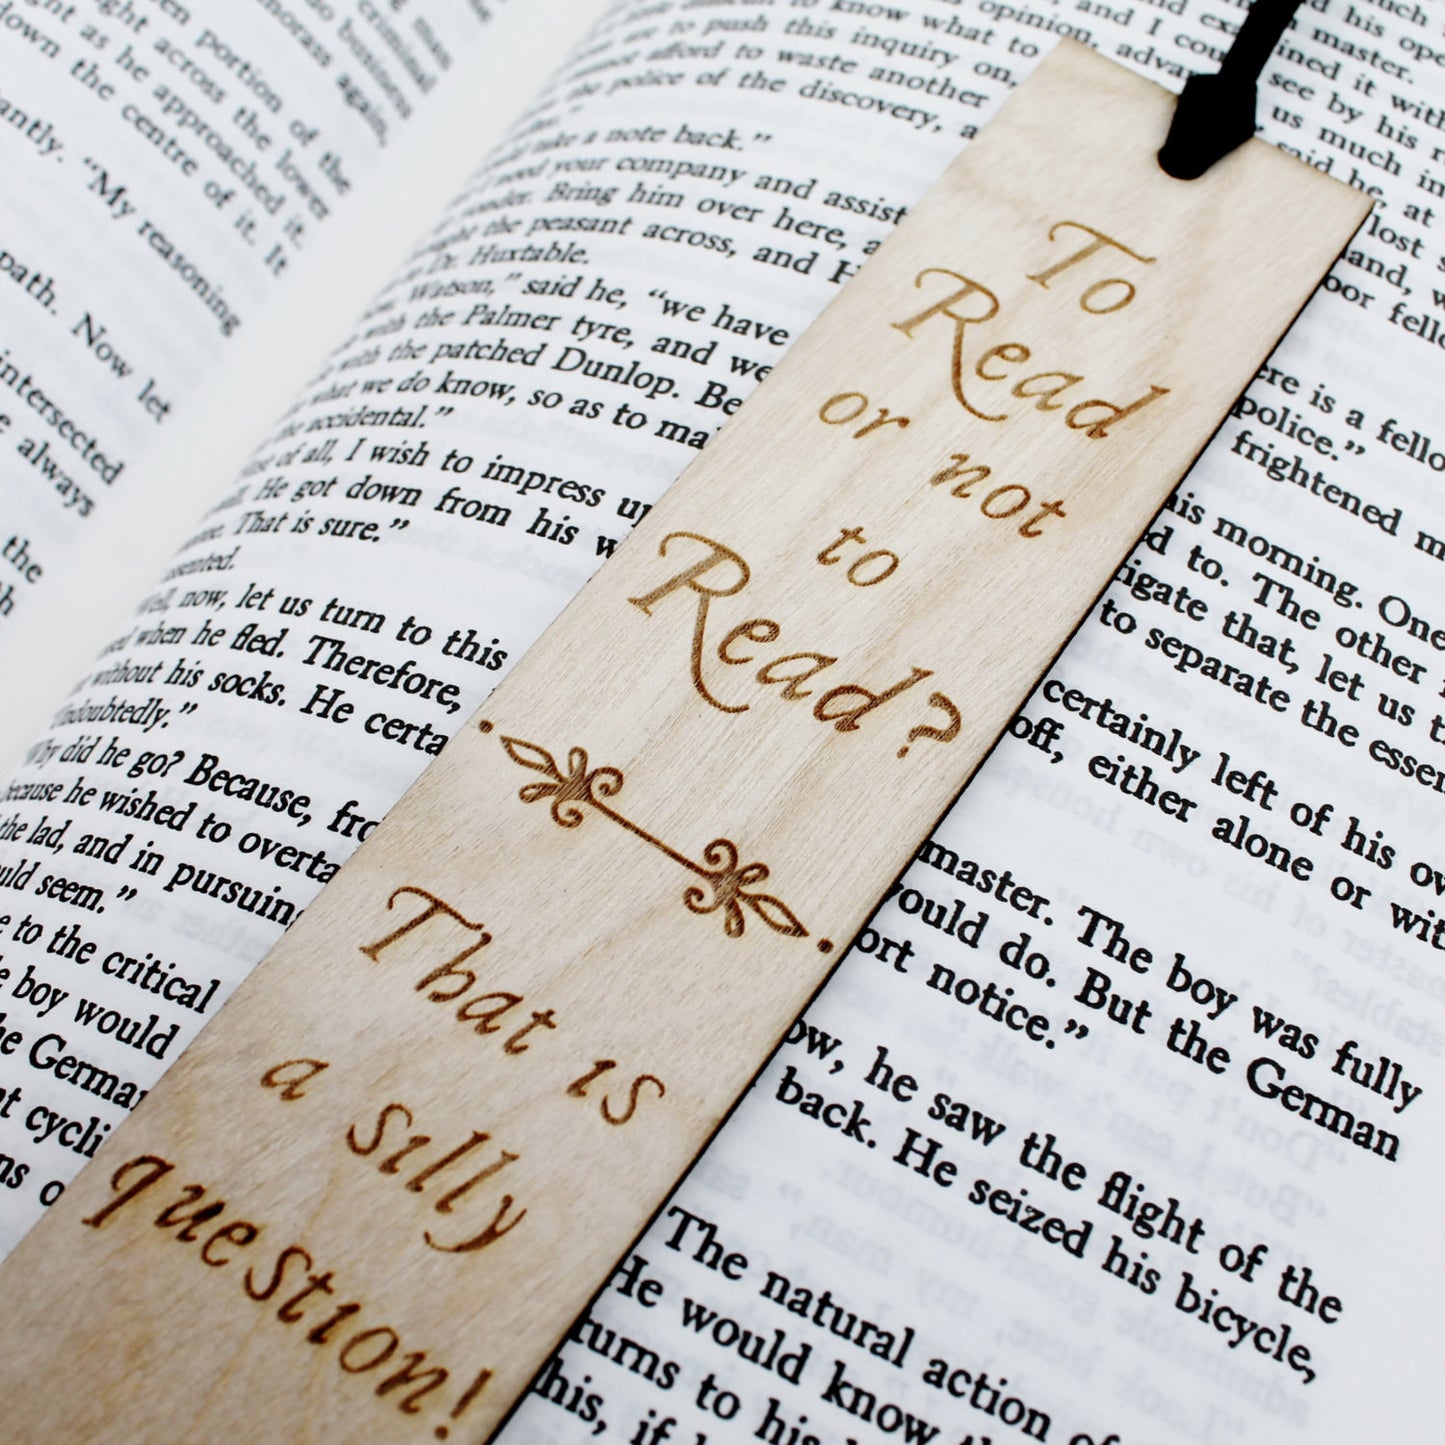 To
Read
or not
to
Read?
That is
a silly
question!
en portion of the
ht across the lower
as he approached it.
down the centre of it. It
antly. "My reasoning
path. Now let
intersected
always
the
criminal
do business
again,
to know what to
me to push this inquiry on,
afford to waste another
the police of the discovery, a
take a note back."
need your company and assist
Bring him over here, a
the peasant across, and H
Dr. Huxtable.
Watson," said he, "we have
with the Palmer tyre, and we
with the patched Dunlop. Be
what we do know, so as to ma
the accidental."
of all, I wish to impress up
He got down from his w
That is sure."
Well, now, let us turn to this
when he fled. Therefore,
without his socks. He certa
Undoubtedly."
Why did he go? Because, fro
because he wished to overta
the lad, and in pursuing
would seem."
to the critical
boy would
he German
cycli
ns o
opinion, and I cou
see by his
us much in
said he, at
lost
land, w
oor fello
ere is a fello
police."
frightened m
his morning. One
d to. The other
tigate that, let us
to separate the essen
certainly left of his ow
off, either alone or wit
master. The boy was fully
would do. But the German
ort notice."
ow, he saw the flight of the
back. He seized his bicycle,
The natural action of
He would know th
turns to his
this, if